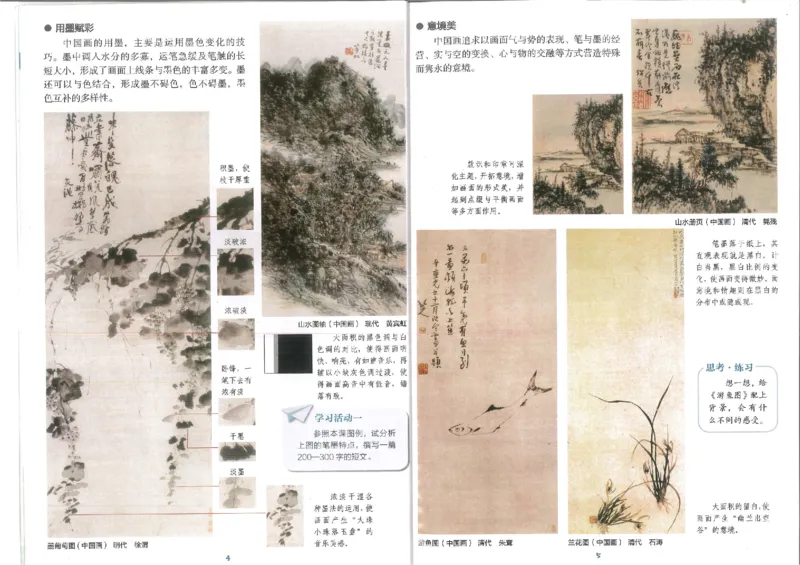 ● 用墨赋彩
中国画的用墨，主要是运用墨色变化的技
巧。墨中调入水分的多寡，运笔急缓及笔触的长
短大小，形成了画面上线条与墨色的丰富多变。墨
还可以与色结合，形成墨不碍色，色不碍墨，墨
色互补的多样性。
积墨，使
枝干厚重
淡破浓
浓破淡
卧锋，一
笔下去有
浓有淡
干墨
淡墨
墨葡萄图（中国画） 明代 徐渭
山水图轴（中国画） 现代 黄宾虹
大面积的黑色调与白
色调的对比，使得画面明
快、响亮，有如建音乐，再
辅以小块灰色调过渡，使
得画面高音中有低音，错
落有致。
学习活动一
参照本课图例，试分析
上图的笔墨特点，撰写一篇
200—300字的短文。
浓淡干湿各
种墨法的运用，使
画面产生“大珠
小珠落玉盘”的
音乐美感。
4
● 意境美
中国画追求以画面气与势的表现、笔与墨的经
营、实与空的变换、心与物的交融等方式营造特殊
而隽永的意境。
款识和印章可深
化主题，开拓意境，增
加画面的形式美，并
起到点缀与平衡画面
等多方面作用。
山水册页（中国画） 清代 髡残
笔墨落于纸上，其
直观表现就是黑白。计
白当黑，黑白比例的变
化，使画面变得微妙，而
意境和情趣则在黑白的
分布中或隐或现。
思考·练习
想一想，给
《游鱼图》配上
背景，会有什
么不同的感受。
大面积的留白，使
画面产生“幽兰出空
谷”的意境。
游鱼图（中国画） 清代 朱耷
兰花图（中国画） 清代 石涛
5